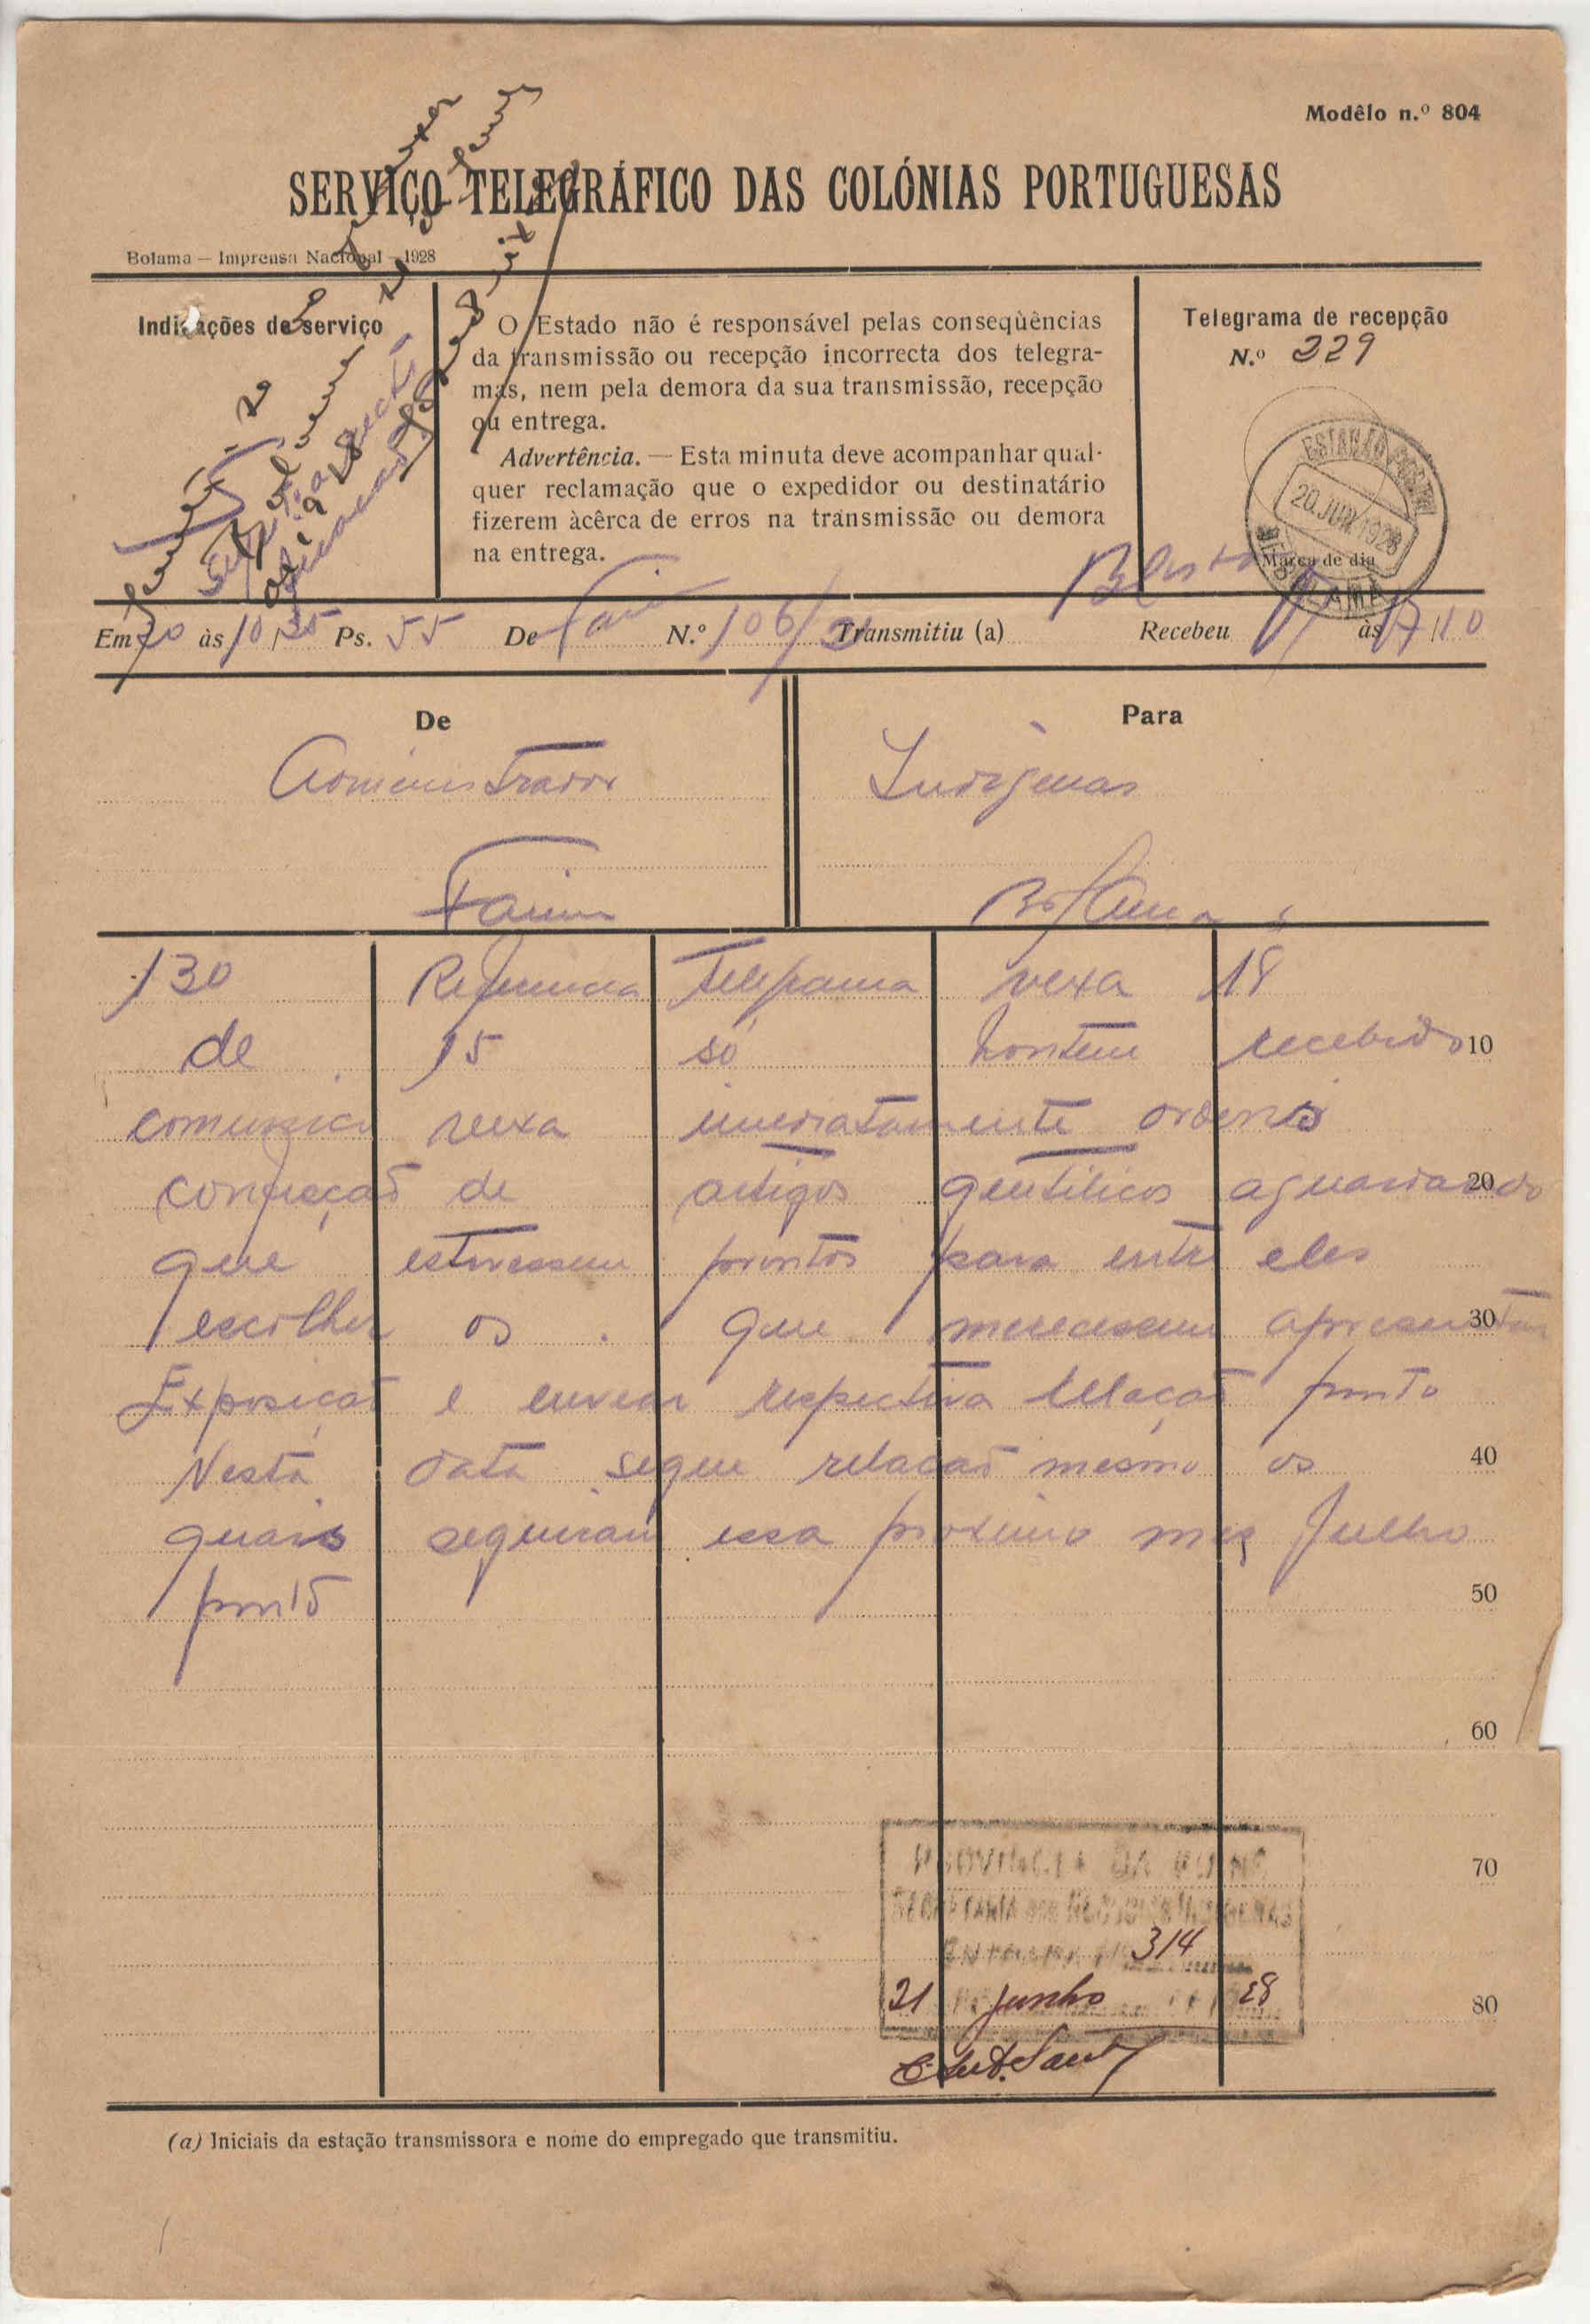 Modêlo n.º 804
SERVIÇO TELEGRÁFICO DAS COLÓNIAS PORTUGUESAS
Bolama — Imprensa Nacional — 1928
Indicações de serviço
O Estado não é responsável pelas conseqùências
da transmissão ou recepção incorrecta dos telegra-
mas, nem pela demora da sua transmissão, recepção
ou entrega.
Advertência. — Esta minuta deve acompanhar qual-
quer reclamação que o expedidor ou destinatário
fizerem àcêrca de erros na transmissão ou demora
na entrega.
Telegrama de recepção
N.º 229
20.JUN.1928
Marca de dia
Em 20 às 10,35 Ps. 55 De N.º 106/ Transmitiu (a) Recebeu às 17,10
De
Administrador
Farim
Para
Indigenas
Bolama
130 Referencia telegrama vexa 18
de 15 só hontem recebido 10
comunico vexa imediatamente ordenei
confecção de artigos gentilicos aguardando 20
que estivessem prontos para entre eles
escolher os que merecessem apresentar 30
Exposição e enviar respectiva relação ponto
Nesta data segue relacao mesmo os 40
quais seguiram essa proximo mes Julho
ponto 50
60
70
80
PROVINCIA DA GUINÉ
314
21 junho 28
(a) Iniciais da estação transmissora e nome do empregado que transmitiu.